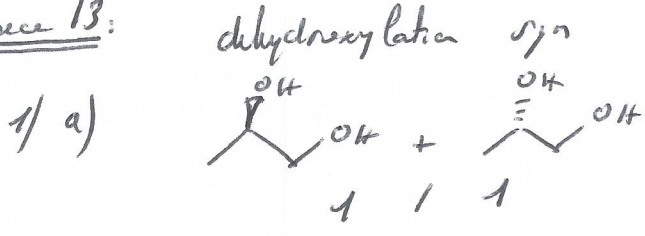 13:
dihydroxylation syn
1/ a)
OH OH
OH + OH
1 / 1